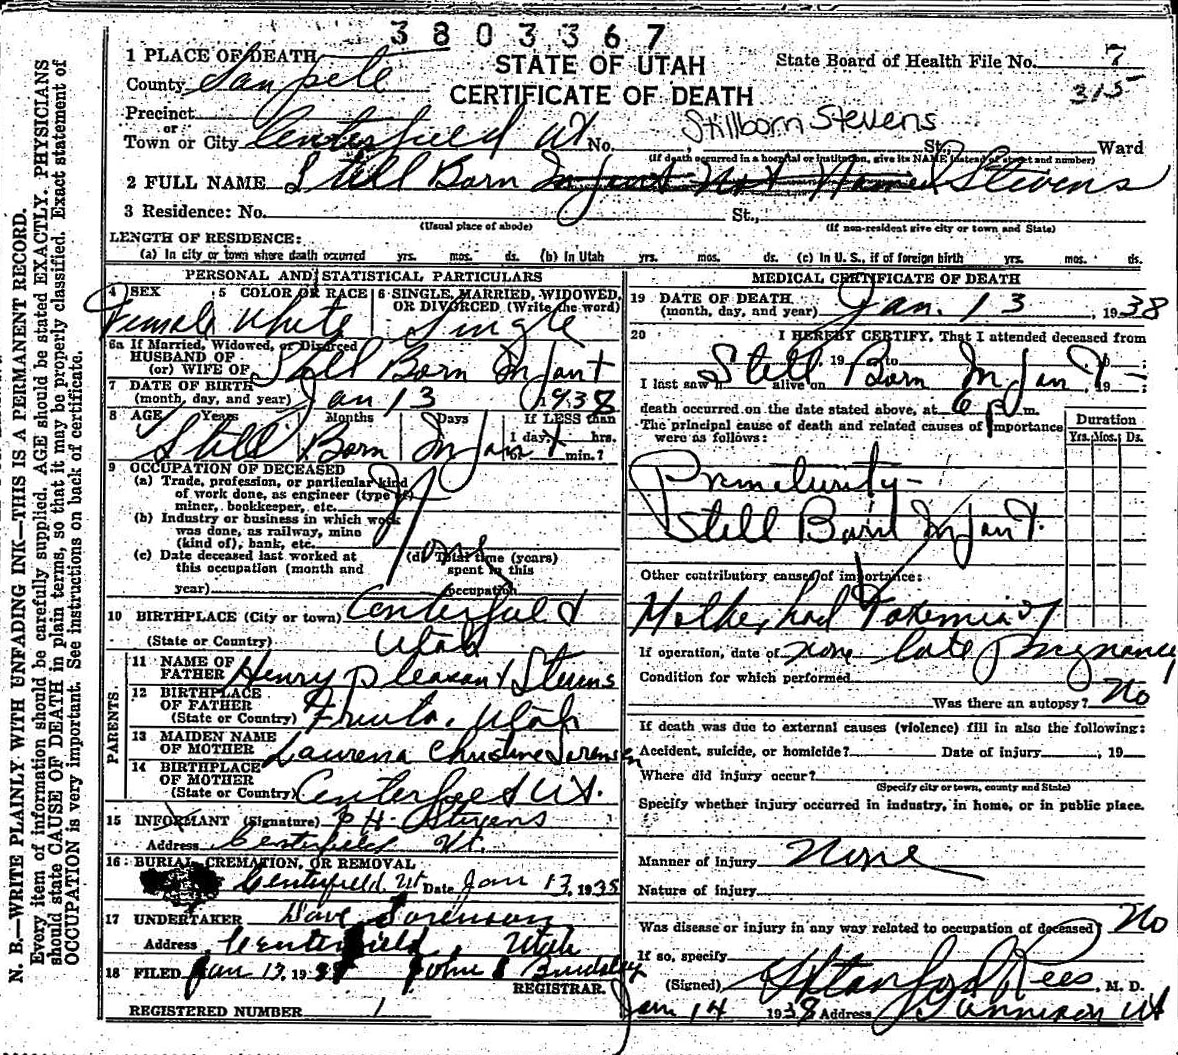 3803367
1 PLACE OF DEATH
STATE OF UTAH
State Board of Health File No. 7
County Sanpete
CERTIFICATE OF DEATH
315
Precinct
or
Stillborn Stevens
Town or City Centerfield Ut No. St., Ward
(If death occurred in a hospital or institution, give its NAME instead of street and number)
2 FULL NAME Still Born Infant Not Named Stevens
3 Residence: No. St.,
(Usual place of abode) (If non-resident give city or town and State)
LENGTH OF RESIDENCE:
(a) In city or town where death occurred yrs. mos. ds. (b) In Utah yrs. mos. ds. (c) In U. S., if of foreign birth yrs. mos. ds.
PERSONAL AND STATISTICAL PARTICULARS
4 SEX 5 COLOR OR RACE 6 SINGLE, MARRIED, WIDOWED, OR DIVORCED (Write the word)
Female White Single
6a If Married, Widowed, or Divorced
HUSBAND OF
(or) WIFE OF Still Born Infant
7 DATE OF BIRTH
(month, day, and year) Jan 13 1938
8 AGE Years Months Days If LESS than
1 day, hrs.
or min.?
Still Born Infant
9 OCCUPATION OF DECEASED
(a) Trade, profession, or particular kind
of work done, as engineer (type of)
miner, bookkeeper, etc.
(b) Industry or business in which work
was done, as railway, mine
(kind of), bank, etc.
(c) Date deceased last worked at
this occupation (month and
year)
(d) Total time (years)
spent in this
occupation
None
10 BIRTHPLACE (City or town) Centerfield
(State or Country) Utah
PARENTS.
11 NAME OF
FATHER Henry Pleasant Stevens
12 BIRTHPLACE
OF FATHER
(State or Country) Fruita, Utah
13 MAIDEN NAME
OF MOTHER Laurena Christine Sorensen
14 BIRTHPLACE
OF MOTHER
(State or Country) Centerfield Ut.
15 INFORMANT (Signature) P H Stevens
Address Centerfield Ut.
16 BURIAL, CREMATION, OR REMOVAL
Centerfield, Ut Date Jan 13, 1938
17 UNDERTAKER Dave Sorenson
Address Centerfield, Utah
18 FILED Jan 13, 19 38 John
REGISTRAR.
REGISTERED NUMBER 1
MEDICAL CERTIFICATE OF DEATH
19 DATE OF DEATH
(month, day, and year) Jan. 13, 1938
20 I HEREBY CERTIFY, That I attended deceased from
, 19 to , 19
Still Born Infant
I last saw h alive on , 19
death occurred on the date stated above, at 6 p m.
The principal cause of death and related causes of importance
were as follows:
Duration
Yrs. Mos. Ds.
Prematurity-
Still Born Infant.
Other contributory causes of importance:
Mother had Toxemia of
late pregnancy
If operation, date of none
Condition for which performed
Was there an autopsy? No
If death was due to external causes (violence) fill in also the following:
Accident, suicide, or homicide? Date of injury , 19
Where did injury occur?
(Specify city or town, county and State)
Specify whether injury occurred in industry, in home, or in public place.
Manner of injury None
Nature of injury
Was disease or injury in any way related to occupation of deceased? No
If so, specify
(Signed) Stanford Rees, M. D.
Jan 14 1938 Address Gunnison Ut
N. B.—WRITE PLAINLY WITH UNFADING INK—THIS IS A PERMANENT RECORD.
Every item of information should be carefully supplied. AGE should be stated EXACTLY. PHYSICIANS
should state CAUSE OF DEATH in plain terms, so that it may be properly classified. Exact statement of
OCCUPATION is very important. See instructions on back of certificate.